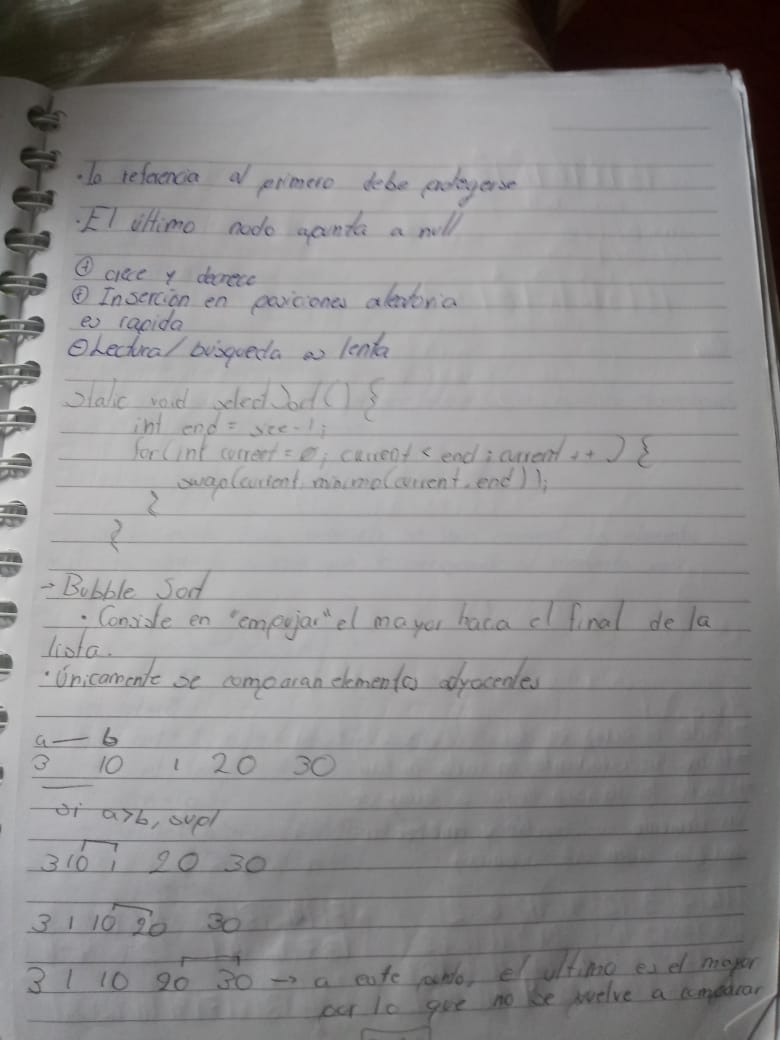 · la referencia al primero debe protegerse
· El último nodo apunta a null
⊕ crece y decrece
⊕ Inserción en posiciones aleatoria
es rapida
⊖ Lectura/búsqueda es lenta
static void selectSort() {
int end = size-1;
for(int current = 0; current < end; current++) {
swap(current, minimo(current, end));
}
}
→ Bubble Sort
· Consiste en "empujar" el mayor hacia el final de la
lista.
· Únicamente se comparan elementos adyacentes
a — b
3 10 1 20 30
si a>b,
3 10 1 20 30
3 1 10 20 30
3 1 10 20 30 → a este punto, el ultimo es el mayor
por lo que no se vuelve a comparar